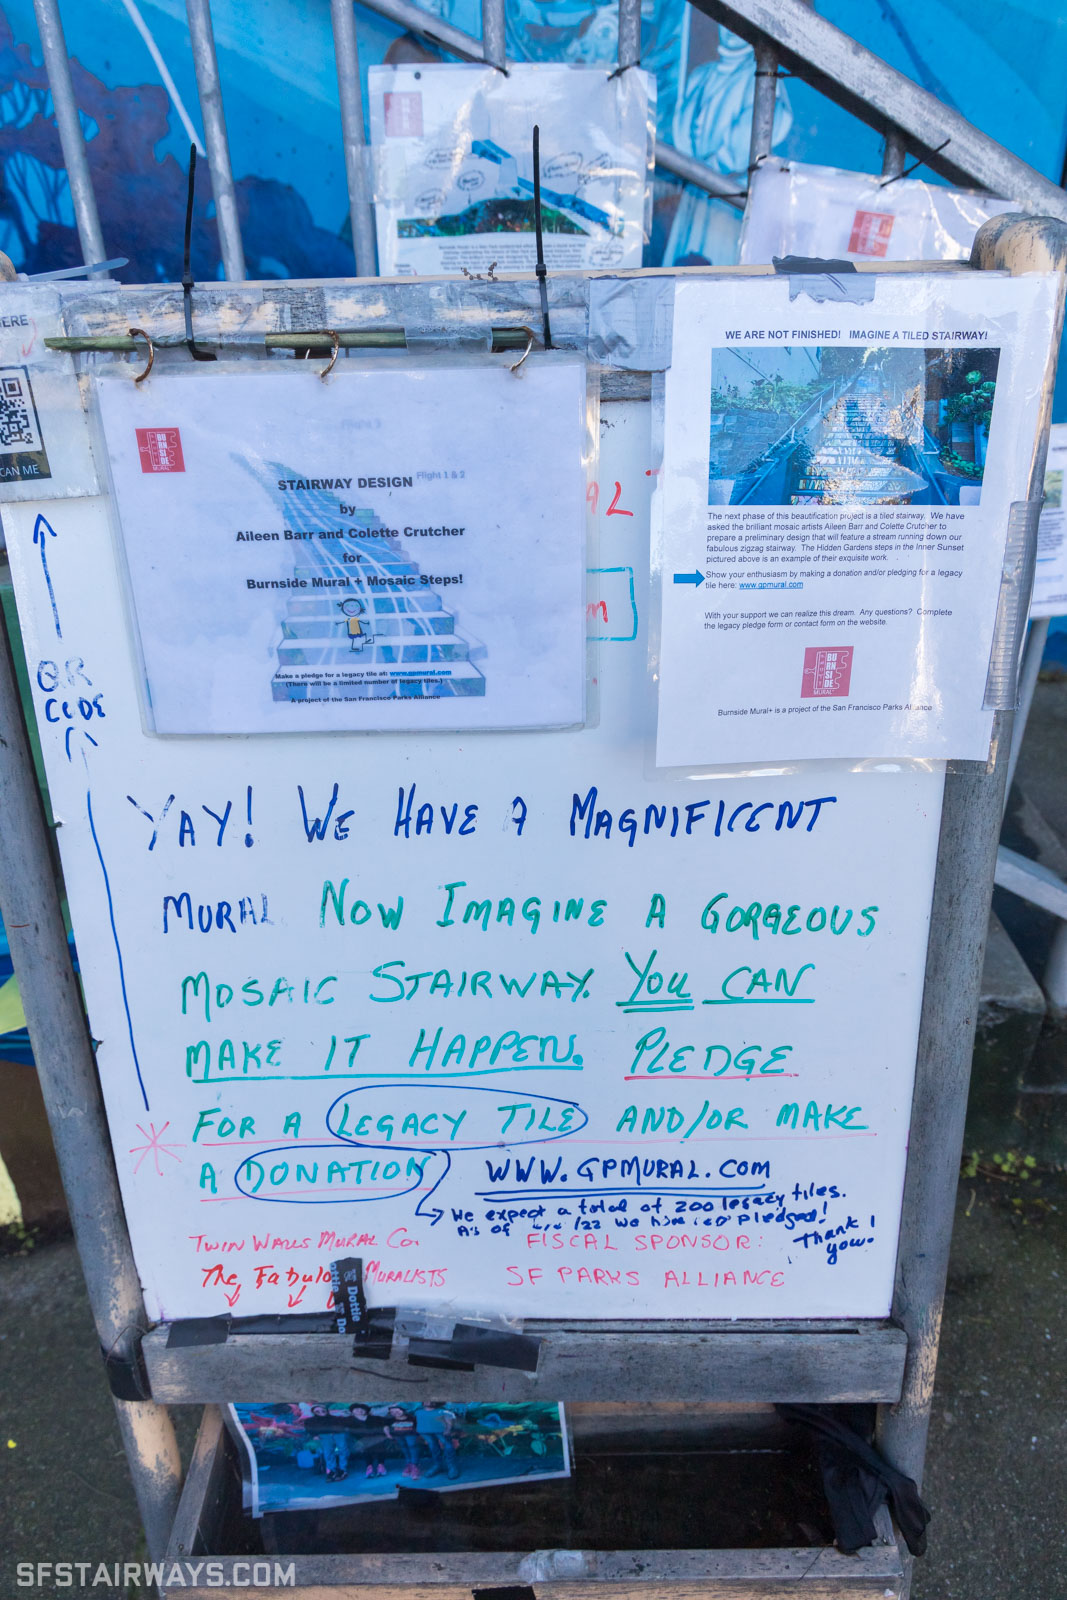 ERE
CAN ME
QR
CODE
STAIRWAY DESIGN
Flight 1 & 2
by
Aileen Barr and Colette Crutcher
for
Burnside Mural + Mosaic Steps!
Make a pledge for a legacy tile at: www.gpmural.com
(There will be a limited number of legacy tiles.)
A project of the San Francisco Parks Alliance
BURNSIDE
MURAL
WE ARE NOT FINISHED! IMAGINE A TILED STAIRWAY!
The next phase of this beautification project is a tiled stairway. We have
asked the brilliant mosaic artists Aileen Barr and Colette Crutcher to
prepare a preliminary design that will feature a stream running down our
fabulous zigzag stairway. The Hidden Gardens steps in the Inner Sunset
pictured above is an example of their exquisite work.
Show your enthusiasm by making a donation and/or pledging for a legacy
tile here: www.gpmural.com
With your support we can realize this dream. Any questions? Complete
the legacy pledge form or contact form on the website.
BURNSIDE
MURAL+
Burnside Mural+ is a project of the San Francisco Parks Alliance
AL
m
YAY! WE HAVE A MAGNIFICENT
MURAL NOW IMAGINE A GORGEOUS
MOSAIC STAIRWAY. YOU CAN
MAKE IT HAPPEN. PLEDGE
FOR A LEGACY TILE AND/OR MAKE
A DONATION WWW.GPMURAL.COM
We expect a total of 200 legacy tiles.
As of /22 we have pledged!
Thank
you.
TWIN WALLS MURAL CO.
The Fabulo MURALISTS
FISCAL SPONSOR:
SF PARKS ALLIANCE
Dottie
SFSTAIRWAYS.COM